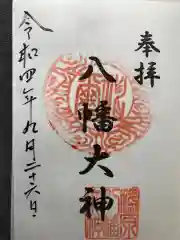 奉拝
八幡大神
令和四年九月二十六日